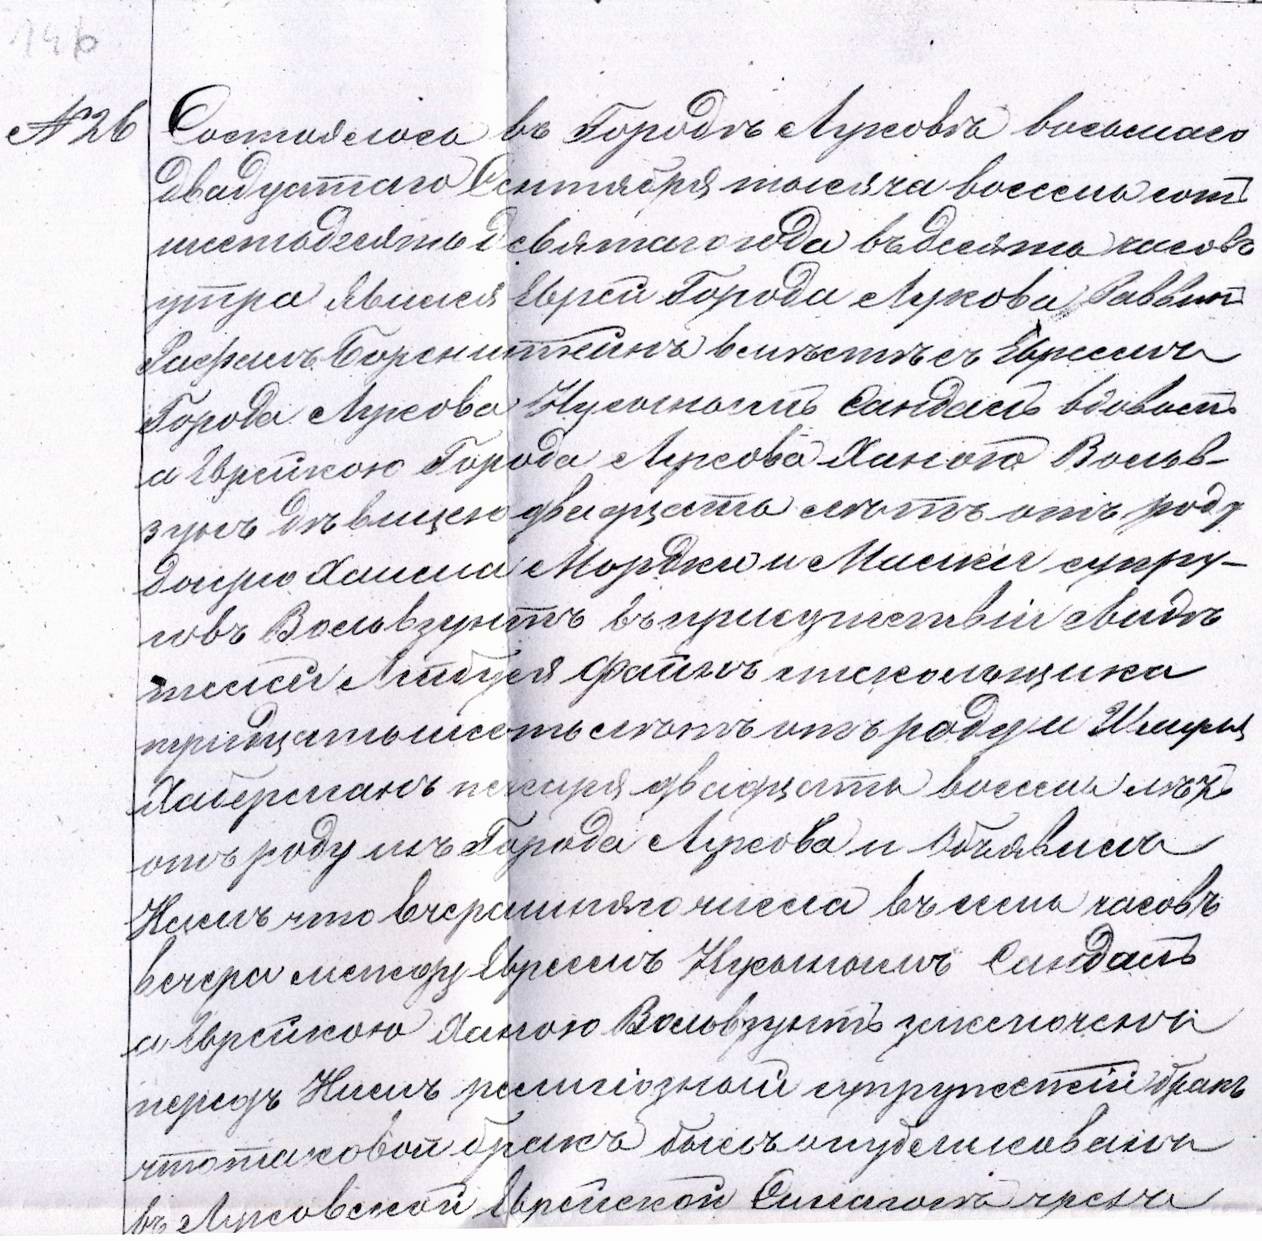 146
№ 26 Состоялось въ Городѣ Луковѣ восьмаго
двадцатаго Сентября тысяча восемь сотъ
шестьдесятъ девятаго года въ десять часовъ
утра явился Еврей Города Лукова Раввин
Борнштейнъ вмѣстѣ съ Евреемъ
Города Лукова Нухымомъ Сандалъ вдовомъ
а Еврейкою Города Лукова Ханою Вольв-
дѣвицею двадцать лѣтъ отъ роду
дочрю Хаима Мордки и супру-
говъ Вользунтъ въ присутствіи свидѣ
телей Лейбуся Файнъ школьщика
тридцать шесть лѣтъ отъ роду и Шмуля
Хаберманъ пекаря двадцать восемь лѣтъ
отъ роду изъ Города Лукова и Объявили
Намъ что вчерашняго числа въ семь часовъ
вечера между Евреемъ Нухымомъ Сандалъ
а Еврейкою Ханою заключены
передъ Нимъ религіозный супружескій бракъ
что таковой бракъ былъ опубликованы
въ Луковской Еврейской Синагогѣ